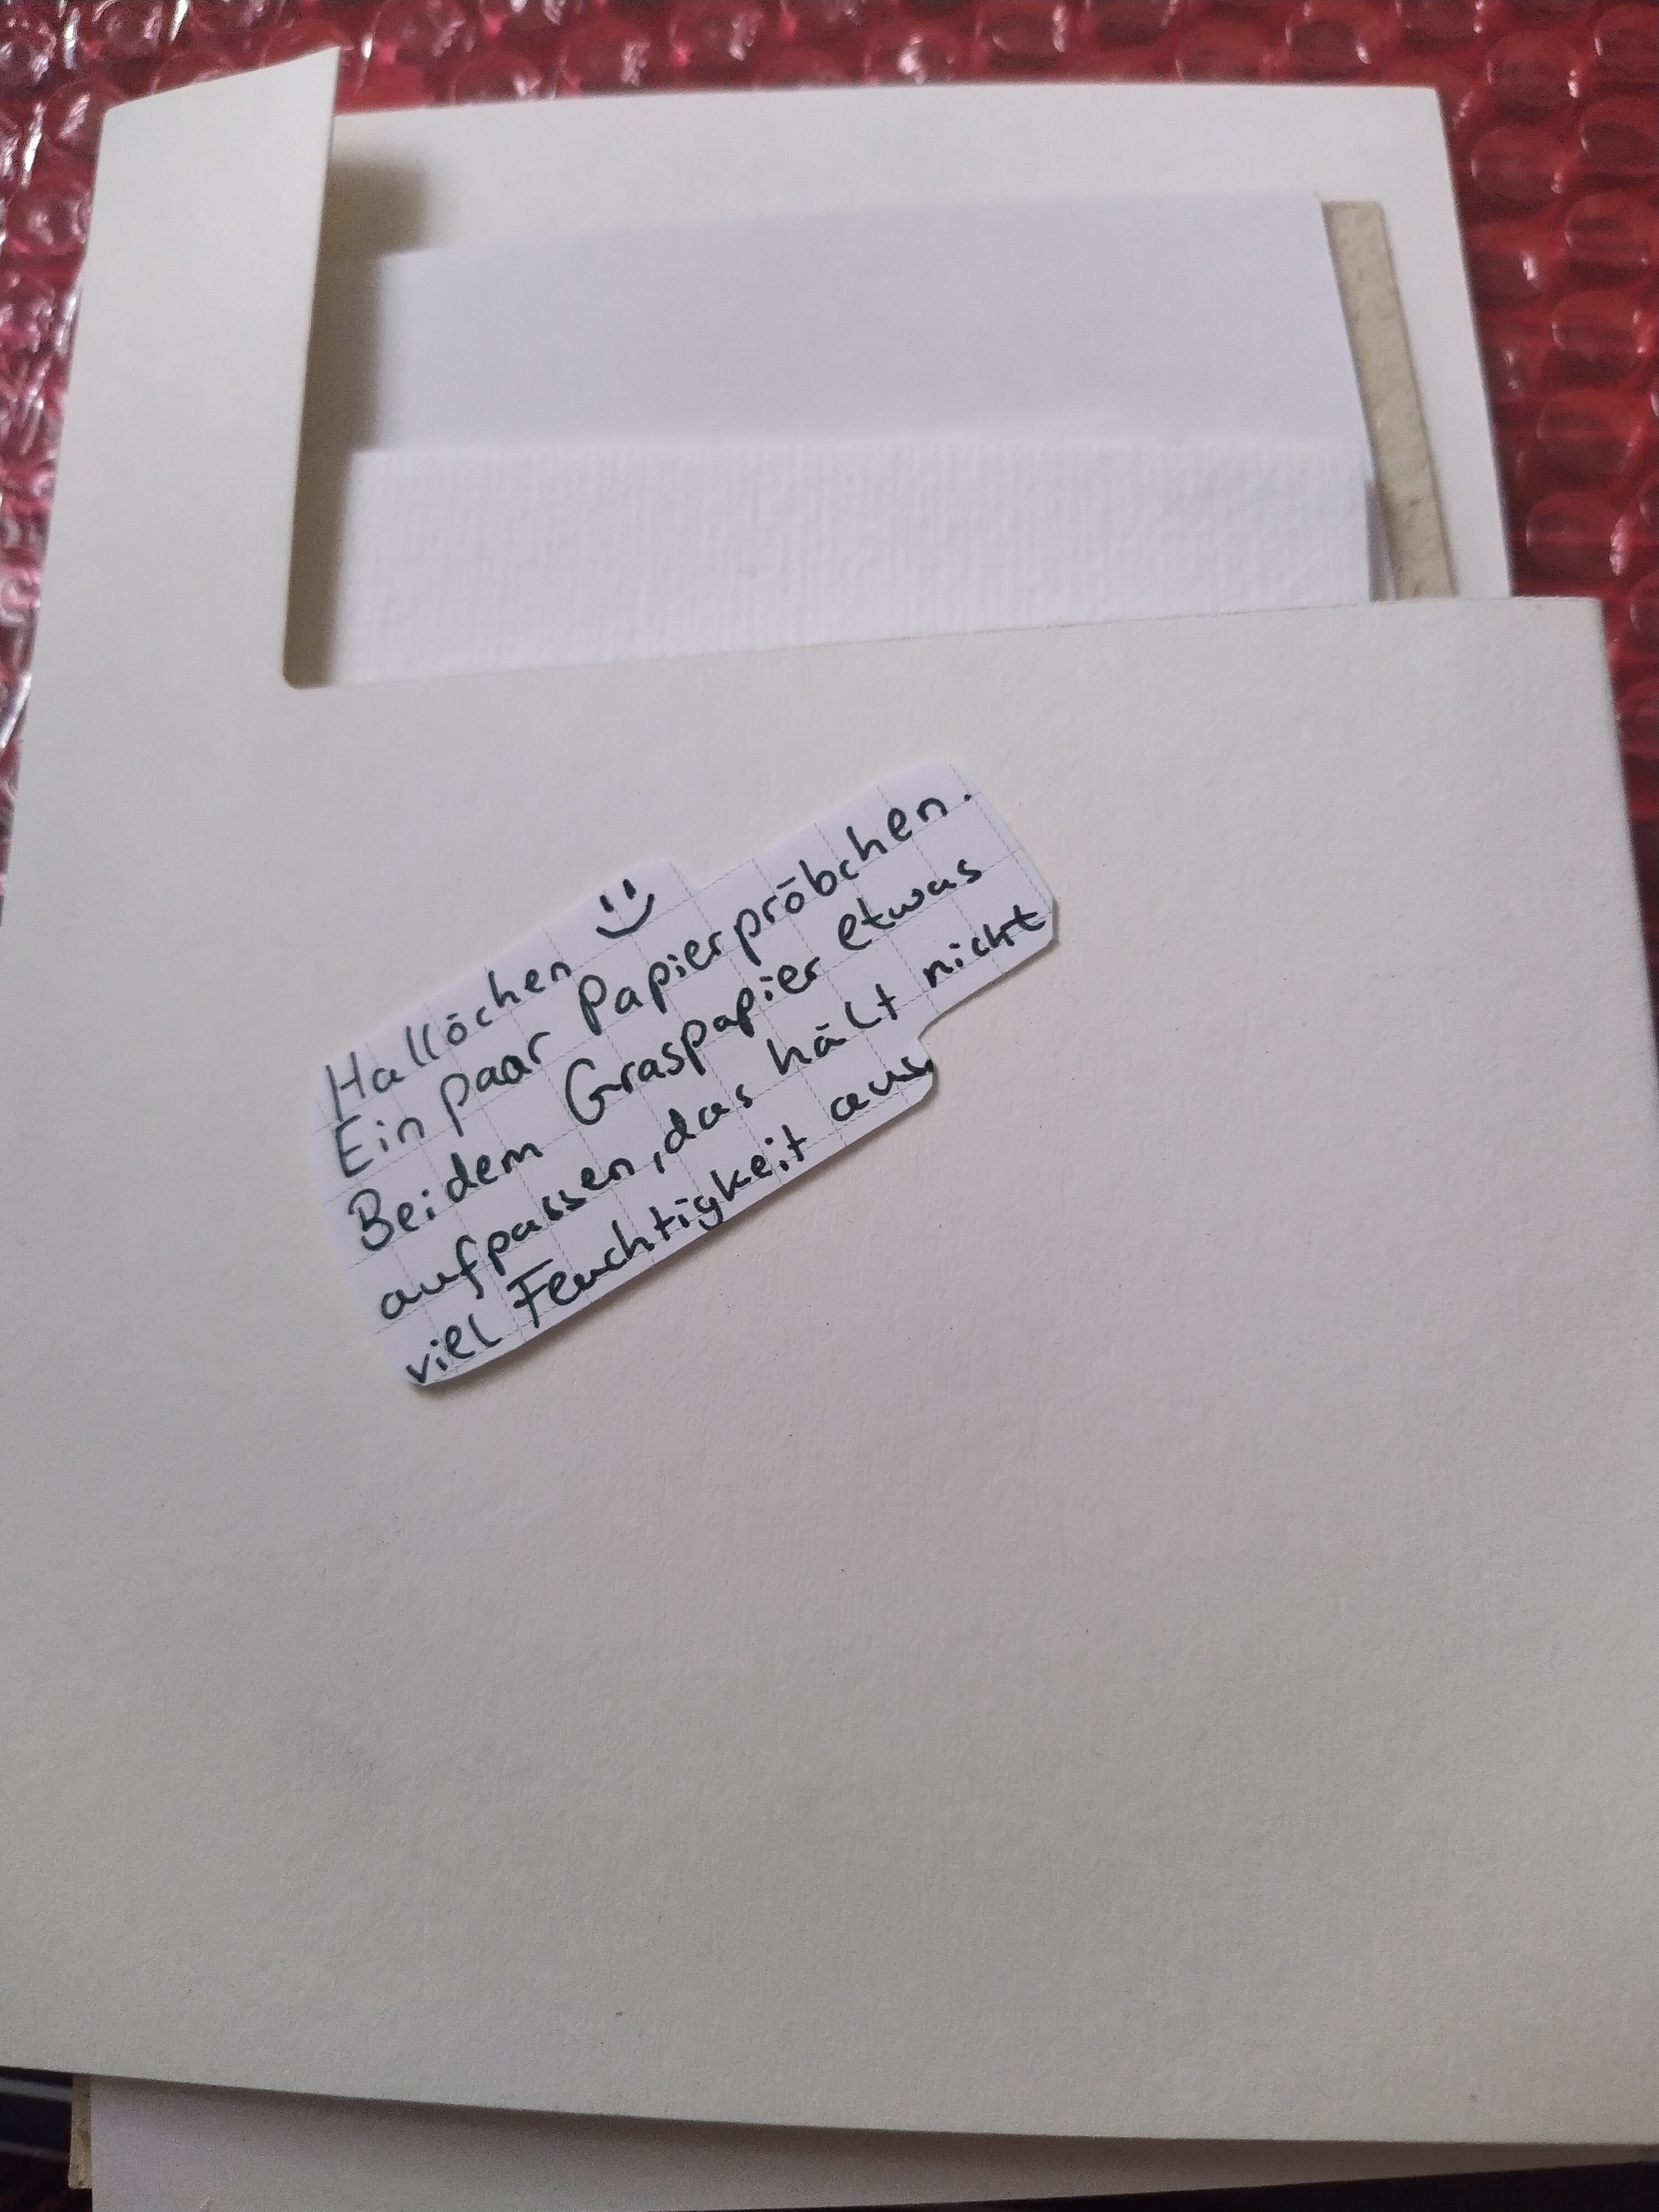 Hallöchen
Ein paar Papierpröbchen.
Bei dem Graspapier etwas
aufpassen, das hält nicht
viel Feuchtigkeit aus